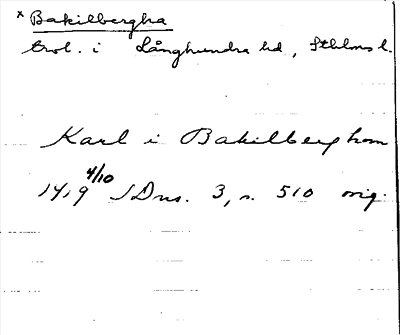 x Bakilbergha
trol. i Långhundra hd, Sthlms l.
Karl i Bakilberghom
1419 4/10 SDns. 3, n. 510 orig.